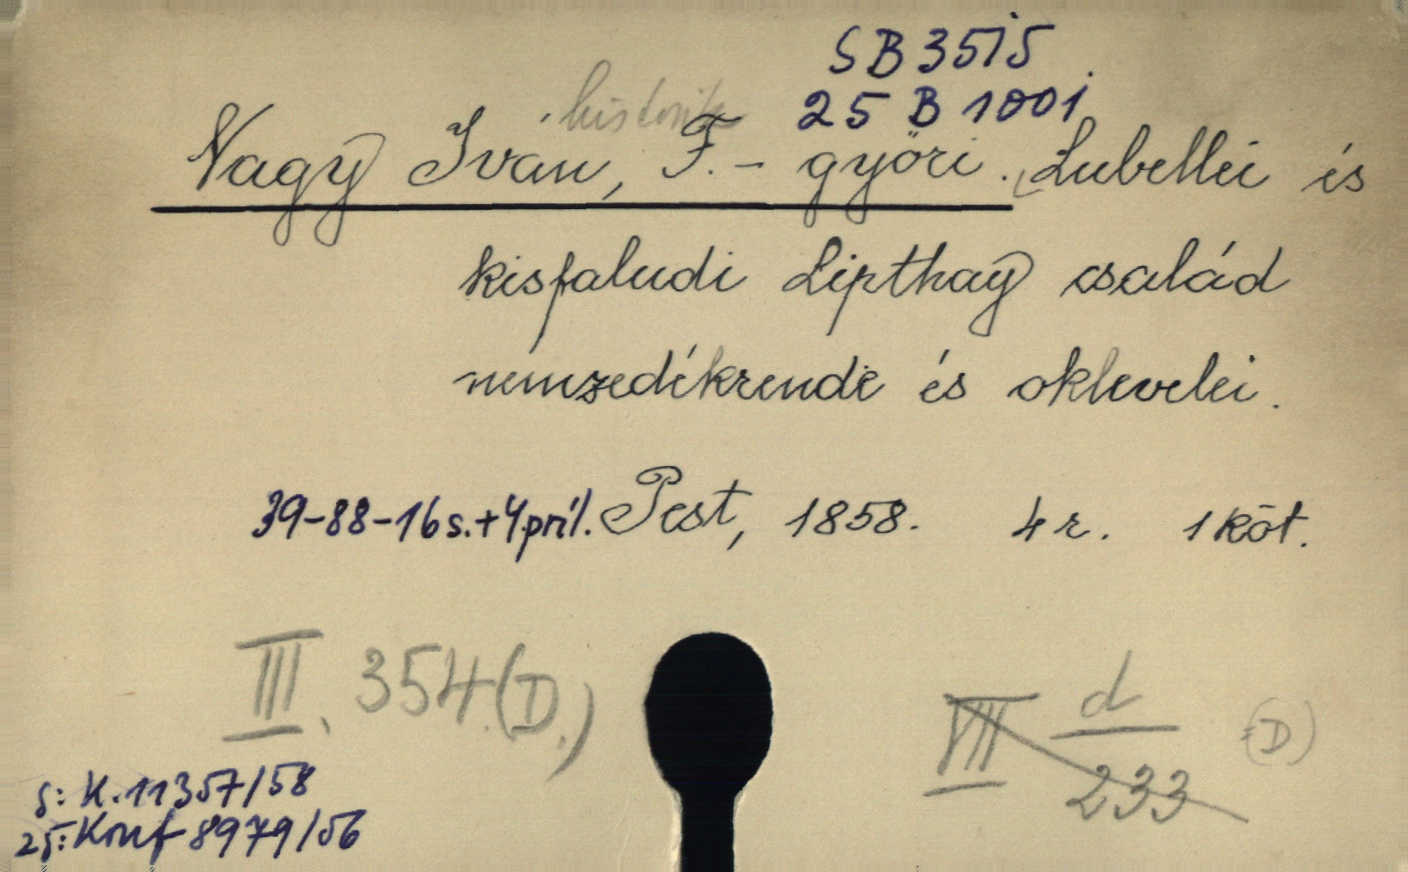 SB 3515
25 B 1001
historik
Nagy Iván, F.- györi. Lubellei és
kisfaludi Lipthay család
nemzedékrende és oklevelei.
39-88-16 s.+4 príl. Pest, 1858. 4 r. 1 köt.
III. 354.(D.)
VII d/233 (D)
5: K. 11357/58
25: Konf 8979/56